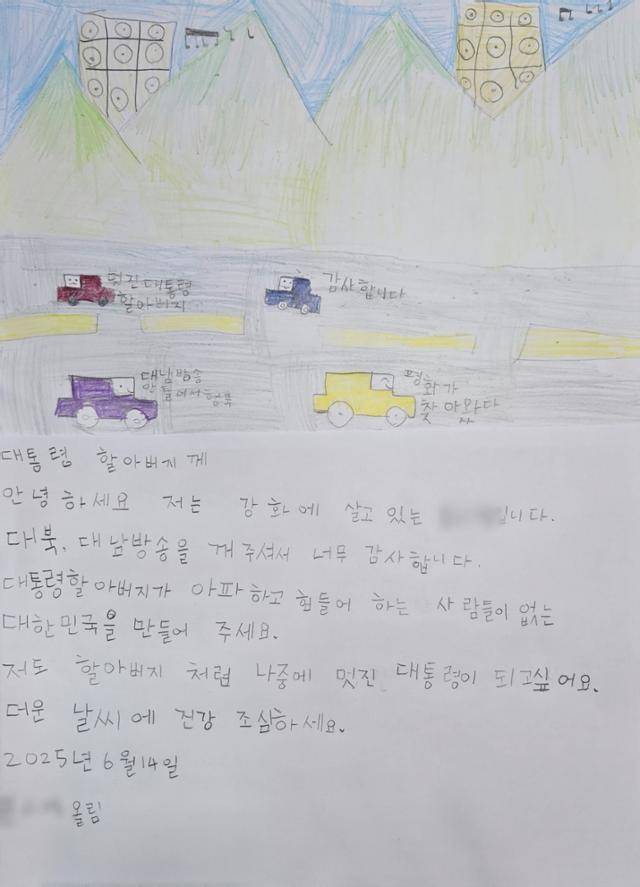 멋진대통령
할아버지
감사합니다
대남방송
안들어서 행복
평화가
찾아왔다
대통령 할아버지께
안녕하세요 저는 강화에 살고 있는 입니다.
대북, 대남방송을 꺼주셔서 너무 감사합니다.
대통령할아버지가 아파하고 힘들어 하는 사람들이 없는
대한민국을 만들어 주세요.
저도 할아버지 처럼 나중에 멋진 대통령이 되고싶어요.
더운 날씨에 건강 조심하세요.
2025년 6월 14일
올림